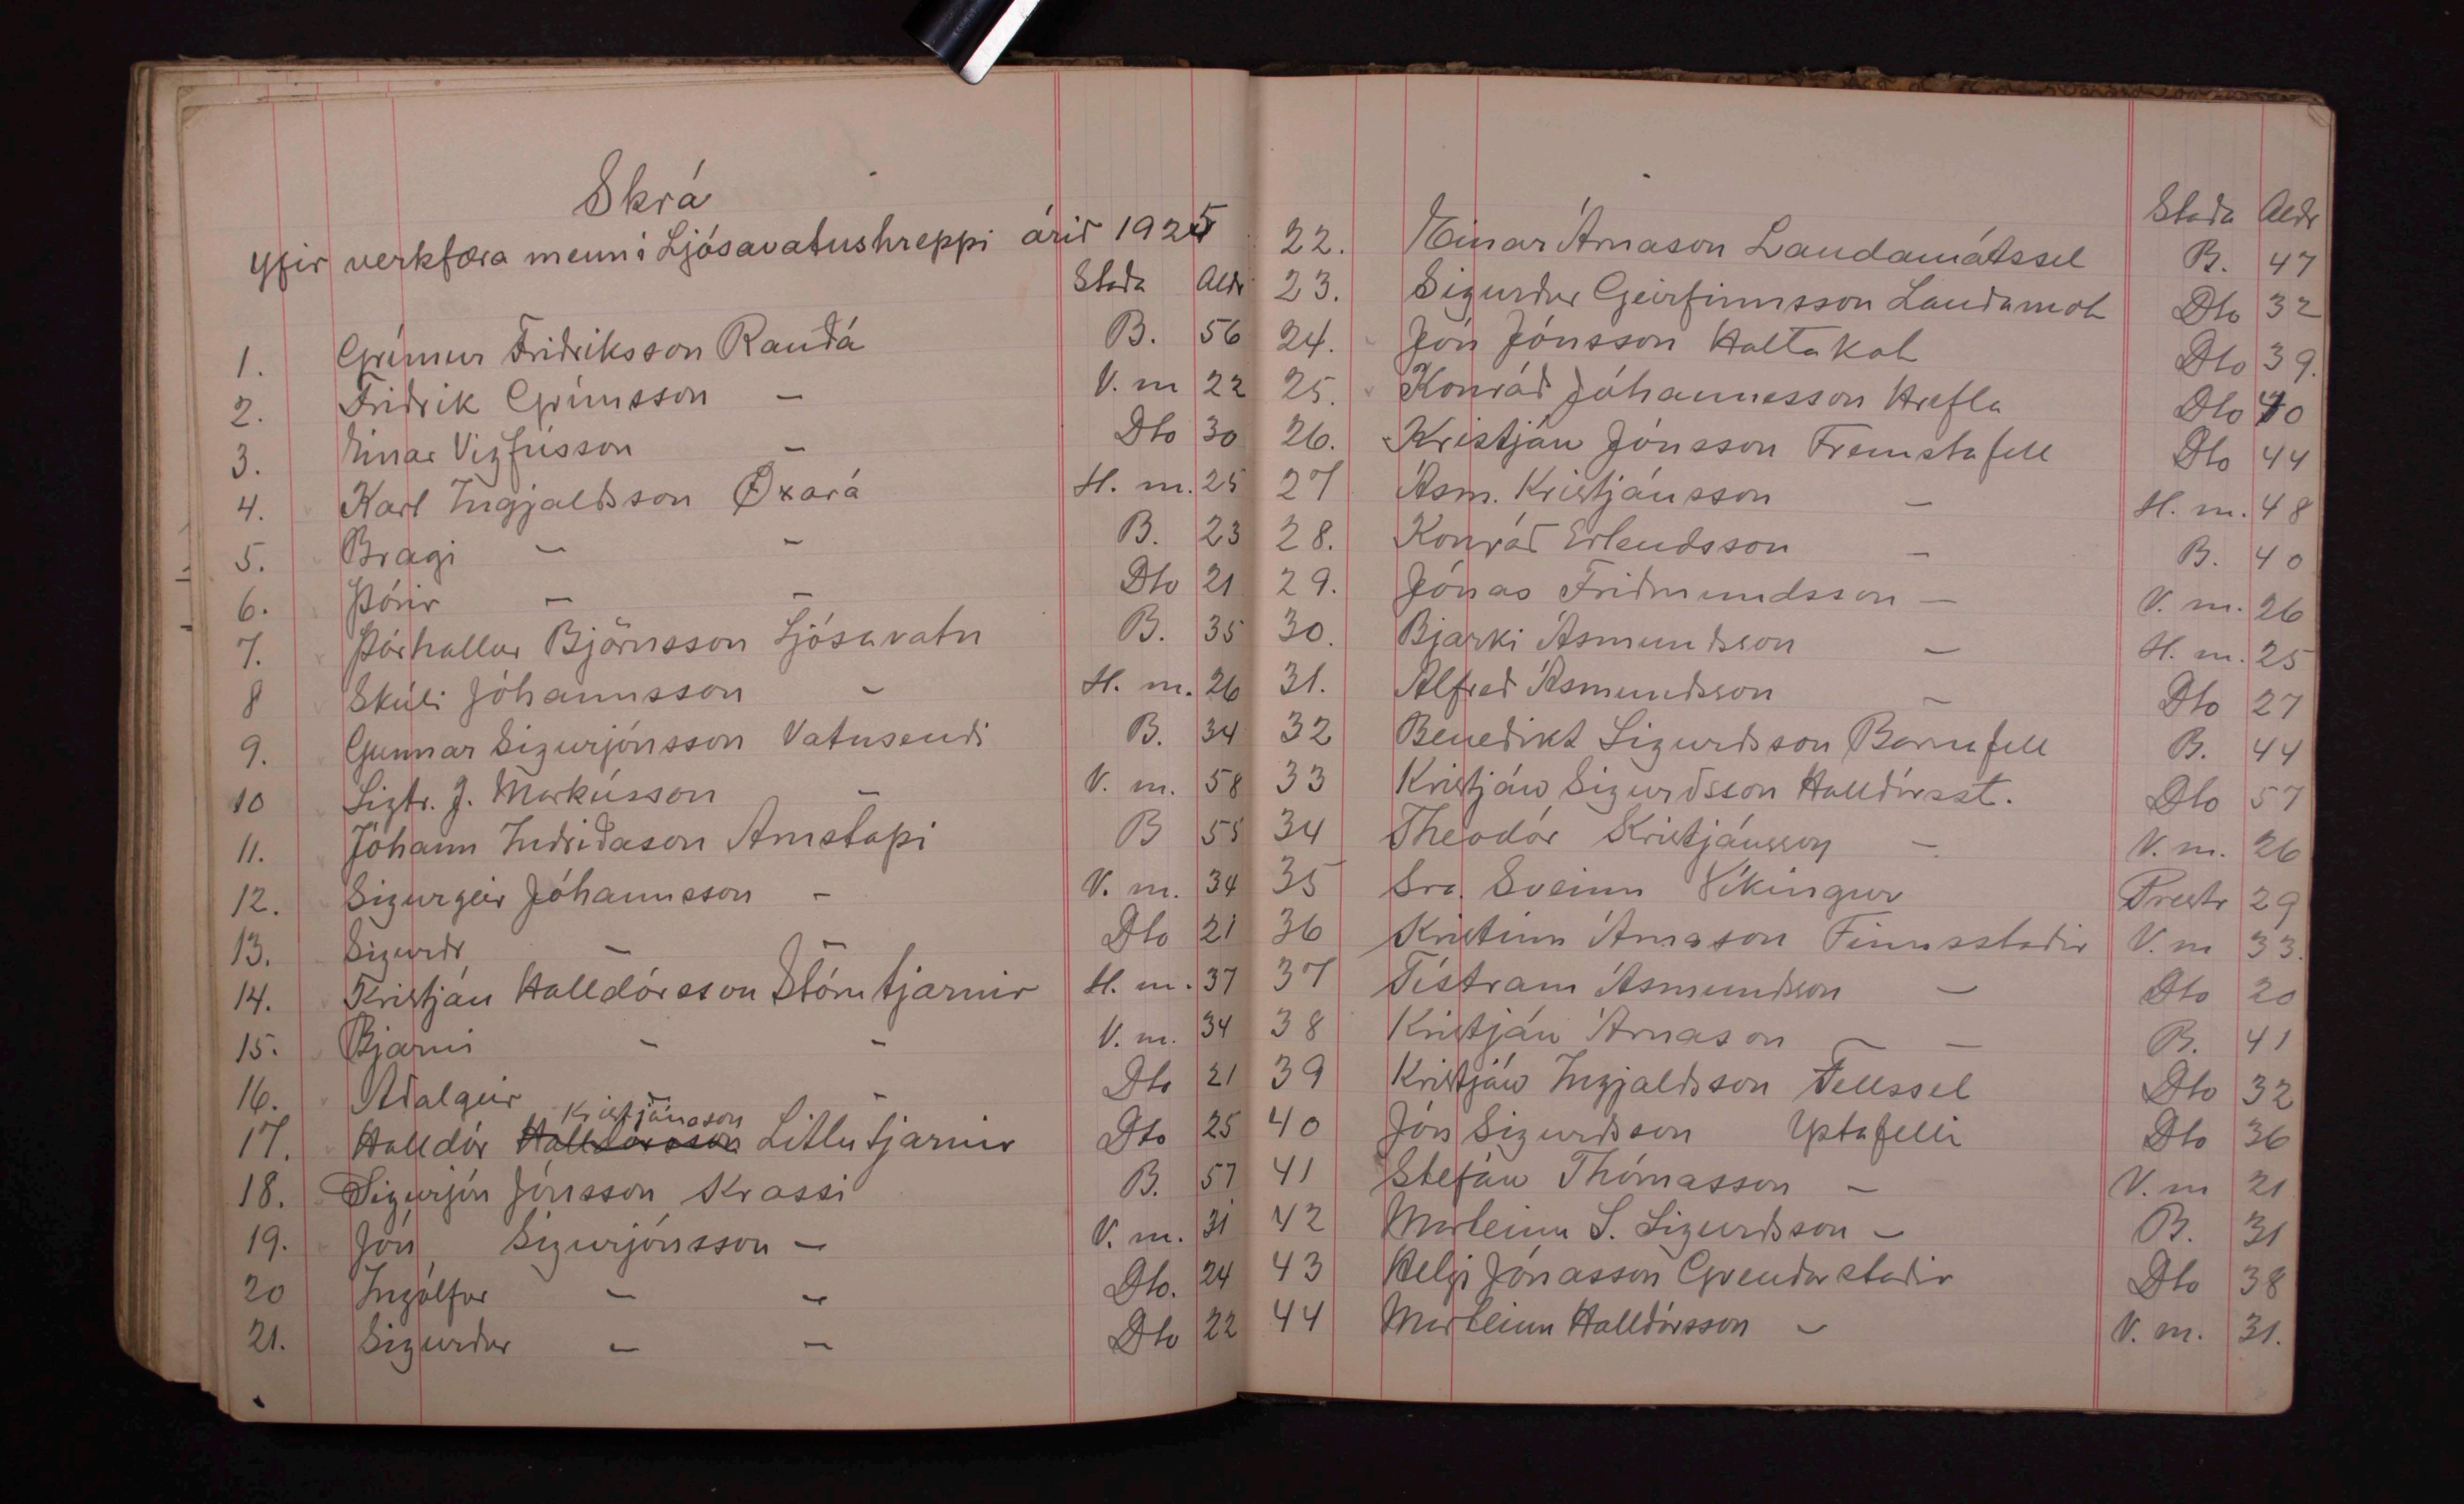 Skrá
yfir verkfæra menn í Ljósavatnshreppi árið 1925
Staða Aldr
1. Grímur Friðriksson Rauðá B. 56
2. Friðrik Grímsson – V. m 22
3. Einar Vigfússon – Dto 30
4. Karl Ingjaldsson Øxará H. m. 25
5. Bragi – – B. 23
6. Þórir – – Dto 21
7. Þórhallur Björnsson Ljósavatn B. 35
8 Skúli Jóhannsson – H. m. 26
9. Gunnar Sigurjónsson Vatnsendi B. 34
10 Sigtr. J. Markússon – V. m. 58
11. Jóhann Indriðason Arnstapi B 55
12. Sigurgeir Jóhannsson – V. m. 34
13. Sigurðr – – Dto 21
14. Kristján Halldórsson Stórutjarnir H. m. 37
15. Bjarni – – V. m. 34
16. Aðalgeir – – Dto 21
17. Halldór Halldórsson Kristjánsson Litlutjarnir Dto 25
18. Sigurjón Jónsson Krossi B. 57
19. Jón Sigurjónsson – V. m. 31
20 Ingólfur – – Dto. 24
21. Sigurður – – Dto 22
Staða Aldr
22. Einar Árnason Landamótssel B. 47
23. Sigurður Geirfinnsson Landamót Dto 32
24. Jón Jónsson Holtakot Dto 39.
25. Konráð Jóhannesson Hrefla Dto 40
26. Kristján Jónsson Fremstafell Dto 44
27 Ásm. Kristjánsson – H. m. 48
28. Konráð Erlendsson – B. 40
29. Jónas Friðmundsson – V. m. 26
30. Bjarki Ásmundsson – H. m. 25
31. Alfreð Ásmundsson – Dto 27
32 Benedikt Sigurðsson Barnafell B. 44
33 Kristján Sigurðsson Halldórsst. Dto 57
34 Theodór Kristjánsson – V. m. 26
35 Sra. Sveinn Víkingur Prestr 29
36 Kristinn Árnason Finnsstaðir V. m 33.
37 Tístram Ásmundsson – Dto 20
38 Kristján Árnason – – B. 41
39 Kristján Ingjaldsson Fellssel Dto 32
40 Jón Sigurðsson Ystafelli Dto 36
41 Stefán Thómasson – V. m 21
42 Marteinn S. Sigurðsson – B. 31
43 Helgi Jónasson Grenđarstađir Dto 38
44 Marteinn Halldórsson – V. m. 31.